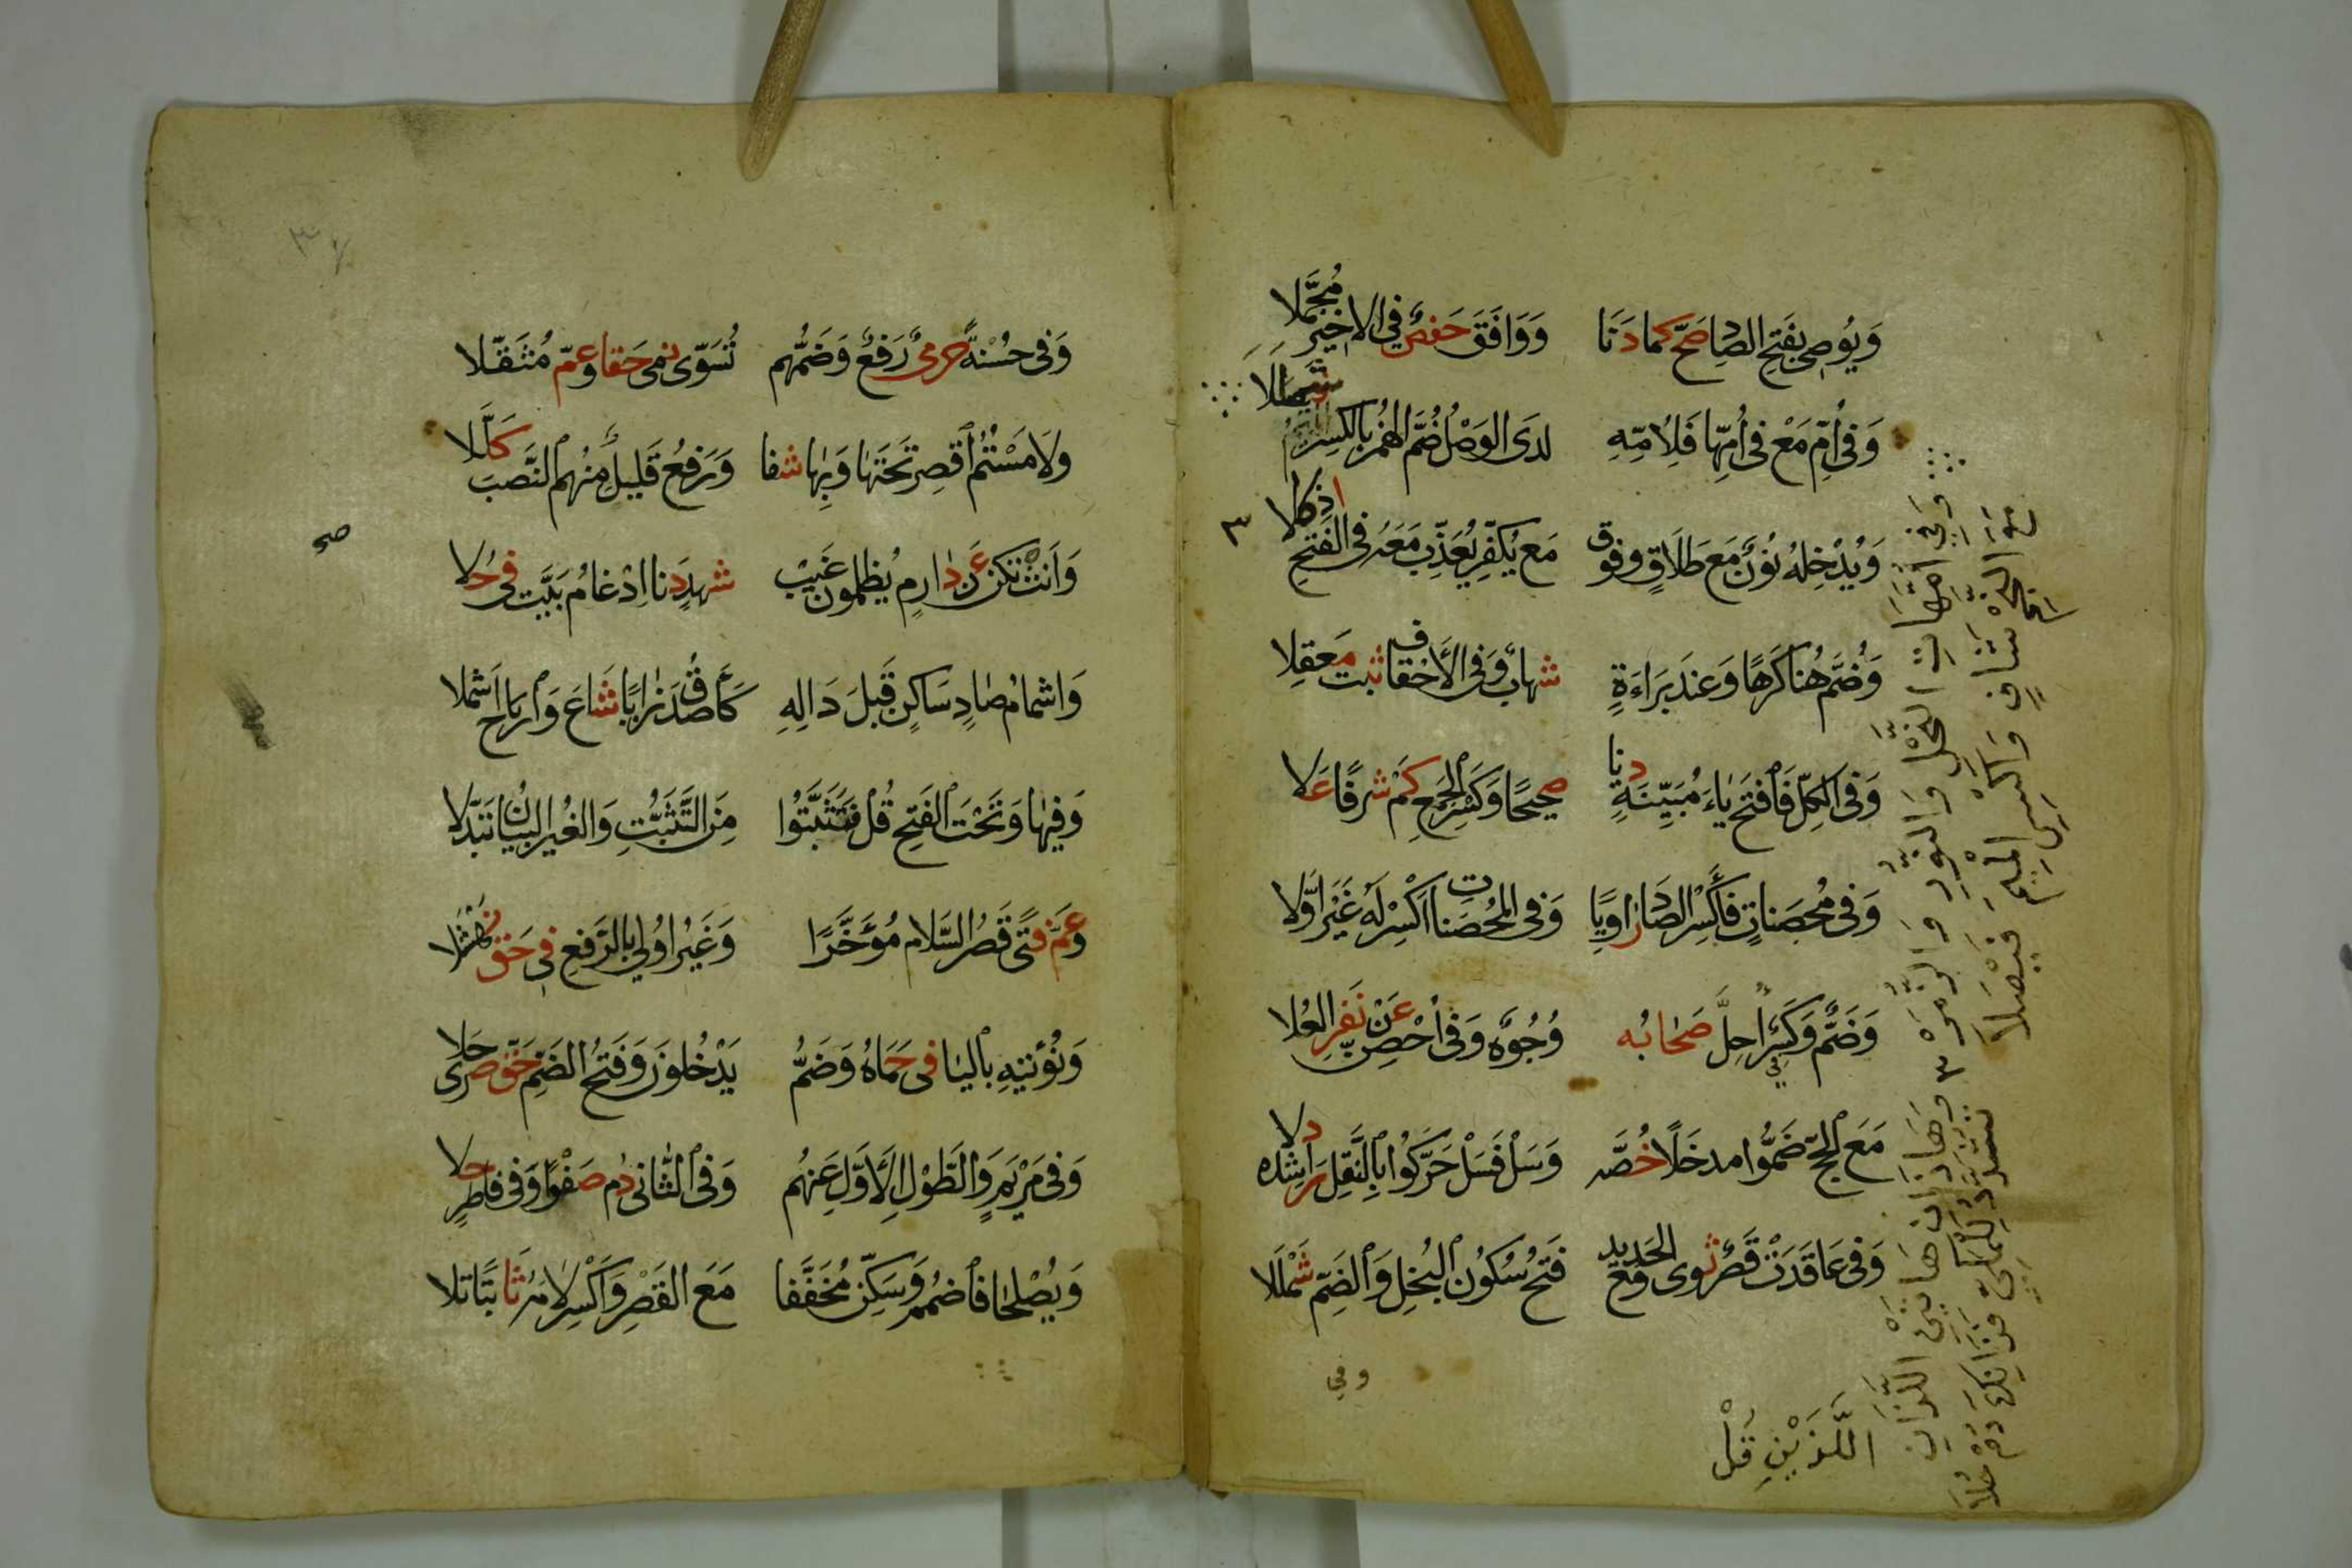 وَيُوصى بِفَتحِ الصَّادِ صَحَّ كَما دَنَا وَوَافَقَ حَفصٌ فِي الاخِيرِ مُجَمَّلا
وَفى أُمِّ مَعْ فى أُمِّهَا فَلِأُمِّهِ لدَى الوَصْلِ ضَمُّ الهَمْزِ بِالكَسرِ شَمْلَلَا
وَيُدْخِلهُ نُونٌ مَعَ طَلَاقٍ وفوق مَع يُكَفِّر يُعَذِّب مَعَهُ فى الفَتحِ اذ كلا
وَضُمَّ هُنا كَرهًا وَعندَ بَرَاءَةٍ شهابٌ وَفى الأَحْقاف ثبت مَعقِلا
وَفى الكلِّ فَافتَح يَاءَ مُبَيِّنَةٍ دنا صحيحًا وَكَسرُ الجَمعِ كَمْ شرفًا عَلا
وَفى مُحصَناتٍ فَأكسِر الصَّادَ زاويًا وَفى المُحصَنات اكْسِر لَهُ غَيرَ اوَّلا
وَضَمٌّ وَكَسرٌ فى أحِلَّ صَحَابُه وُجُوهٌ وَفى أحْصِنَّ عَنْ نَفَرِ العُلا
مَعَ الحَجِّ ضَمُّوا مدخَلًا خُصَّه وَسَلْ فَسَلْ حَرَّكُوا بِالنَّقلِ رَاشِده دلا
وَفى عَاقَدَتْ قَصرٌ ثوى وَمَع الحَديد فَتحُ سُكُونِ البُخلِ وَالضَّمِّ شَمْلَلا
وفي
وَفِي امَّهَاتِ النَّحْلِ وَالنُّورِ وَالزُّمَرْ
مَعَ النَّجْمِ شَافٍ وَاكْسِرِ المِيمَ فَيْصَلَا
٣ وَهَاذَانِ هَاتَيْنِ اللَّذَانِ
اللَّذَيْنِ قُلْ
تشَدَّدُ لِلْمَكِّى فَذَانِكَ دُمْ حُلَا
٣
وَفى حَسَنهً حرمىُّ رَفعٌ وَضَمُّهم تُسَوّى نمى حَقا وعمّ مُثَقَّلا
ولَامَسْتُمُ اقصِر تَحَتَهَا وَبِهَا شفا وَرَفعُ قَلِيلٌ مِنهُم النَّصبَ كَلَّلا
وَأنِّث تكن عَن دَارِمٍ يُظلمون غَيبُ شهدٍ دَنا اِدْغامُ بَيَّت فى حُلا
صح
وَاشمامُ صَادٍ سَاكِنٍ قَبلَ دَالِهِ كَأَصْدَقُ زَايًا شَاعَ وَارتاح اشمُلا
وَفيهَا وَتَحْتَ الفَتحِ قُل فَتَثَبَّتُوا مِنَ التَّثَبُّتِ وَالغَيرُ البَيَانُ تَبَدَّلا
وَعَمَّ فتًى قَصرُ السَّلَام مُؤَخَّرًا وَغَيرَ اوُلِي بالرَّفعِ فى حَقِّ نَهْشَلا
وَنُؤتيهِ بِاليَا فى حِمَاهُ وَضَمُّ يَدْخُلونَ وَفَتحُ الضَّمِّ حَقُّ صَرَى حَلا
وَفى مَرْيَمٍ وَالطَّوْل الاَوَّل عَنهُم وَفى الثَّانى دُم صَفْوًا وَفى فاطرٍ حلا
وَيُصْلِحَا فاضمُم وَسَكِّن مُخَفَّفا مَعَ القَصْرِ وَاكْسِر لَامَهُ ثَابتًا تلا